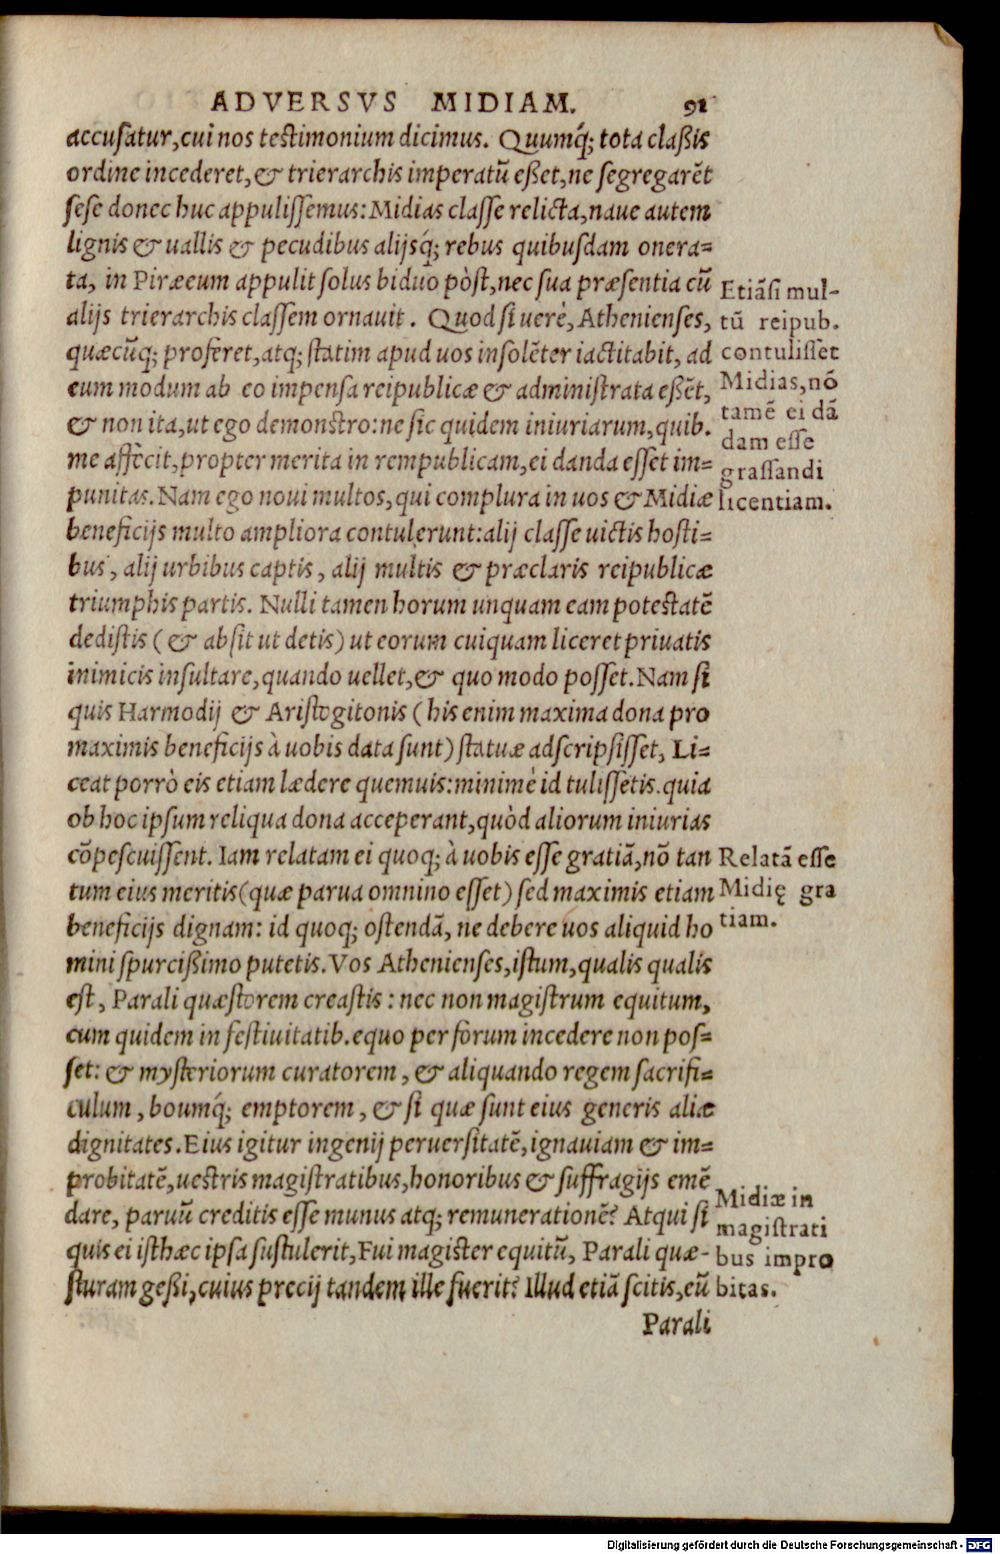 ADVERSVS MIDIAM. 91
accusatur, cui nos testimonium dicimus. Quumq́; tota claßis
ordine incederet, & trierarchis imperatū eßet, ne segregarēt
sese donec huc appulissemus: Midias classe relicta, naue autem
lignis & uallis & pecudibus alijsq́; rebus quibusdam onera=
ta, in Piræeum appulit solus biduo pòst, nec sua præsentia cū
alijs trierarchis classem ornauit. Quod si uerè, Athenienses,
quæcūq; proferet, atq; statim apud uos insolēter iactitabit, ad
eum modum ab eo impensa reipublicæ & administrata eßēt,
& non ita, ut ego demonstro: ne sic quidem iniuriarum, quib.
me affecit, propter merita in rempublicam, ei danda esset im=
punitas. Nam ego noui multos, qui complura in uos & Midiæ
beneficijs multo ampliora contulerunt: alij classe uictis hosti=
bus, alij urbibus captis, alij multis & præclaris reipublicæ
triumphis partis. Nulli tamen horum unquam eam potestatē
dedistis (& absit ut detis) ut eorum cuiquam liceret priuatis
inimicis insultare, quando uellet, & quo modo posset. Nam si
quis Harmodij & Aristogitonis (his enim maxima dona pro
maximis beneficijs à uobis data sunt) statuæ adscripsisset, Li=
ceat porrò eis etiam lædere quemuis: minimè id tulissetis. quia
ob hoc ipsum reliqua dona acceperant, quòd aliorum iniurias
cōpescuissent. Iam relatam ei quoq; à uobis esse gratiā, nō tan
tum eius meritis (quæ parua omnino esset) sed maximis etiam
beneficijs dignam: id quoq; ostendā, ne debere uos aliquid ho
mini spurcißimo putetis. Vos Athenienses, istum, qualis qualis
est, Parali quæstorem creastis: nec non magistrum equitum,
cum quidem in festiuitatib. equo per forum incedere non pos=
set: & mysteriorum curatorem, & aliquando regem sacrifi=
culum, boumq́; emptorem, & si quæ sunt eius generis aliæ
dignitates. Eius igitur ingenij peruersitatē, ignauiam & im=
probitatē, uestris magistratibus, honoribus & suffragijs emē
dare, paruū creditis esse munus atq; remunerationē? Atqui si
quis ei isthæc ipsa sustulerit, Fui magister equitū, Parali quæ-
sturam geßi, cuius precij tandem ille fuerit? Illud etiā scitis, eū
Parali
Etiāsi mul-
tū reipub.
contulisset
Midias, nō
tamē ei dā
dam esse
grassandi
licentiam.
Relatā esse
Midię gra
tiam.
Midiæ in
magistrati
bus impro
bitas.
Digitalisierung gefördert durch die Deutsche Forschungsgemeinschaft - DFG